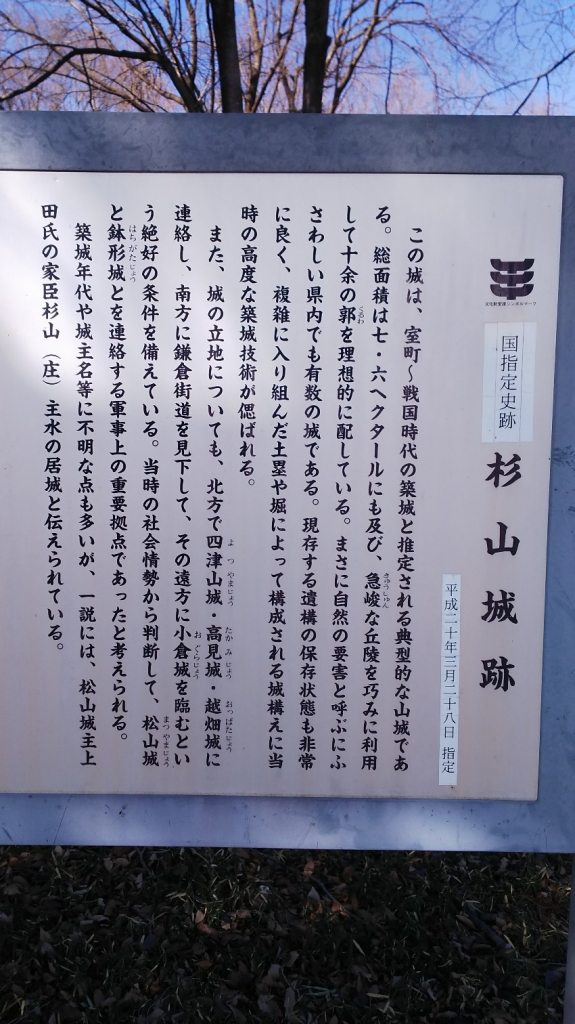 国指定史跡
杉山城跡
平成二十年三月二十八日 指定
この城は、室町～戦国時代の築城と推定される典型的な山城であ
る。総面積は七・六ヘクタールにも及び、急峻な丘陵を巧みに利用
して十余の郭を理想的に配している。まさに自然の要害と呼ぶにふ
さわしい県内でも有数の城である。現存する遺構の保存状態も非常
に良く、複雑に入り組んだ土塁や堀によって構成される城構えに当
時の高度な築城技術が偲ばれる。
また、城の立地についても、北方で四津山城・高見城・越畑城に
連絡し、南方に鎌倉街道を見下して、その遠方に小倉城を臨むとい
う絶好の条件を備えている。当時の社会情勢から判断して、松山城
と鉢形城とを連絡する軍事上の重要拠点であったと考えられる。
築城年代や城主名等に不明な点も多いが、一説には、松山城主上
田氏の家臣杉山（庄）主水の居城と伝えられている。